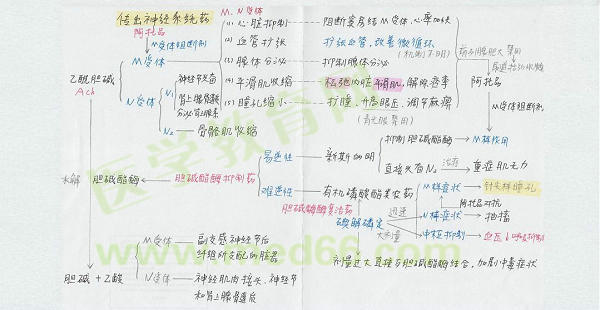 传出神经系统药
阿托品
M受体阻断剂
M、N受体
乙酰胆碱
Ach
M受体
N受体
(1) 心脏抑制
阻断窦房结M受体,心率加快
(2) 血管扩张
扩张血管,改善微循环
(机制不明)
(3) 腺体分泌
抑制腺体分泌
(4) 平滑肌收缩
松弛内脏平滑肌,解除痉挛
(5) 瞳孔缩小
扩瞳、升高眼压、调节麻痹
(青光眼禁用)
前列腺肥大禁用
阿托品
M受体阻断剂
N₁
神经节兴奋
肾上腺髓质
N₂
骨骼肌收缩
水解
胆碱酯酶
胆碱酯酶抑制药
易逆性
新斯的明
抑制胆碱酯酶
M样作用
直接兴奋N₂
治疗
重症肌无力
难逆性
有机磷酸酯类农药
M样症状
针尖样瞳孔
阿托品对抗
N样症状
抽搐
中枢抑制
胆碱酯酶复活药
碘解磷定
迅速
大剂量
剂量过大直接与胆碱酯酶结合,加剧中毒症状
胆碱+乙酸
M受体
副交感神经节后
纤维所支配的脏器
N受体
神经肌肉接头、神经节
和肾上腺髓质
医学教育网
www.med66.com